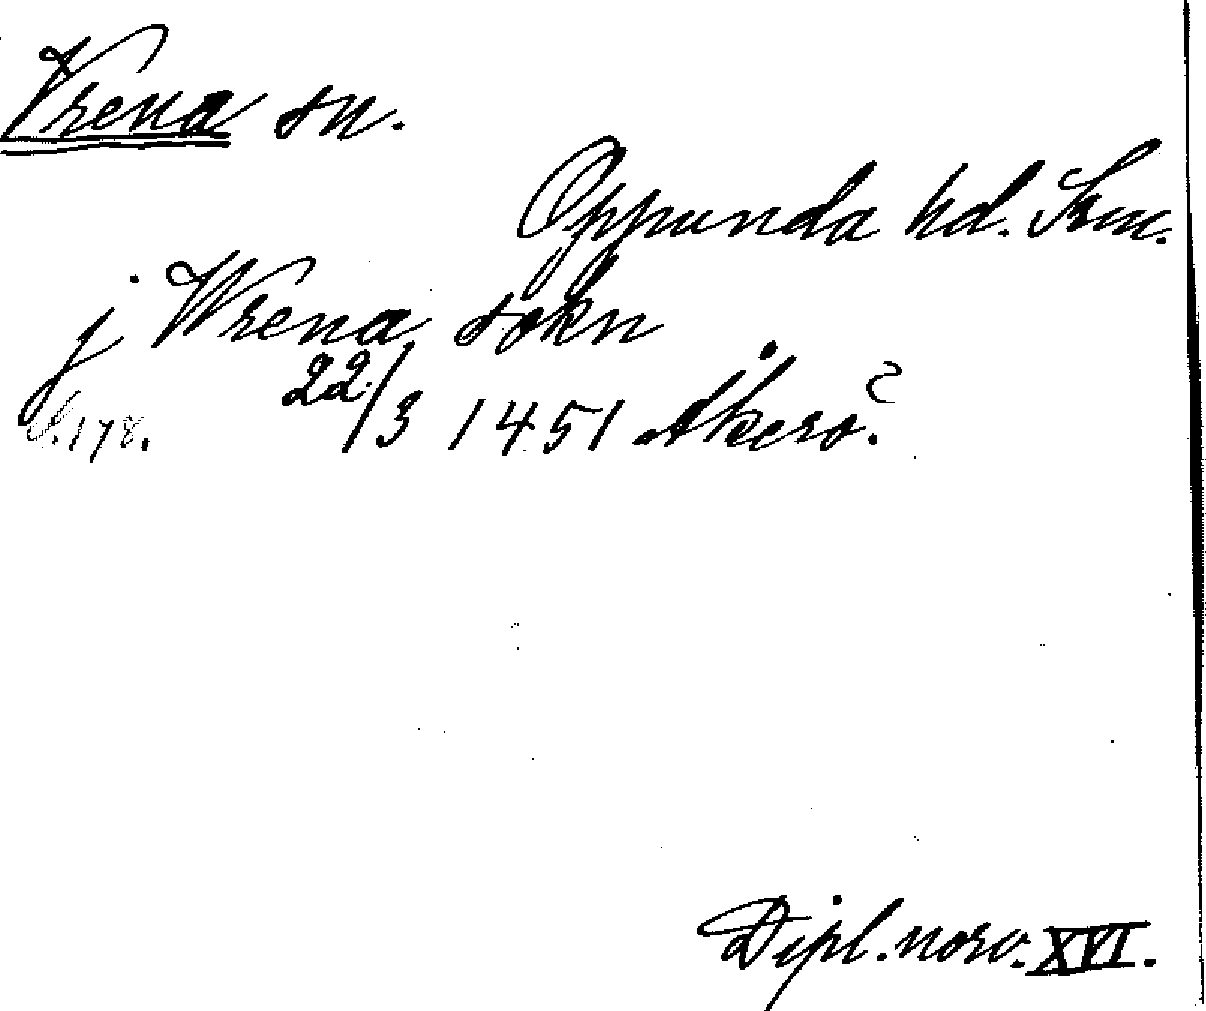 Vrena sn.
Oppunda hd. Snm.
j Wrena sokn
22/3 1451 Åkerö?
S. 178.
Dipl. norv. XVI.